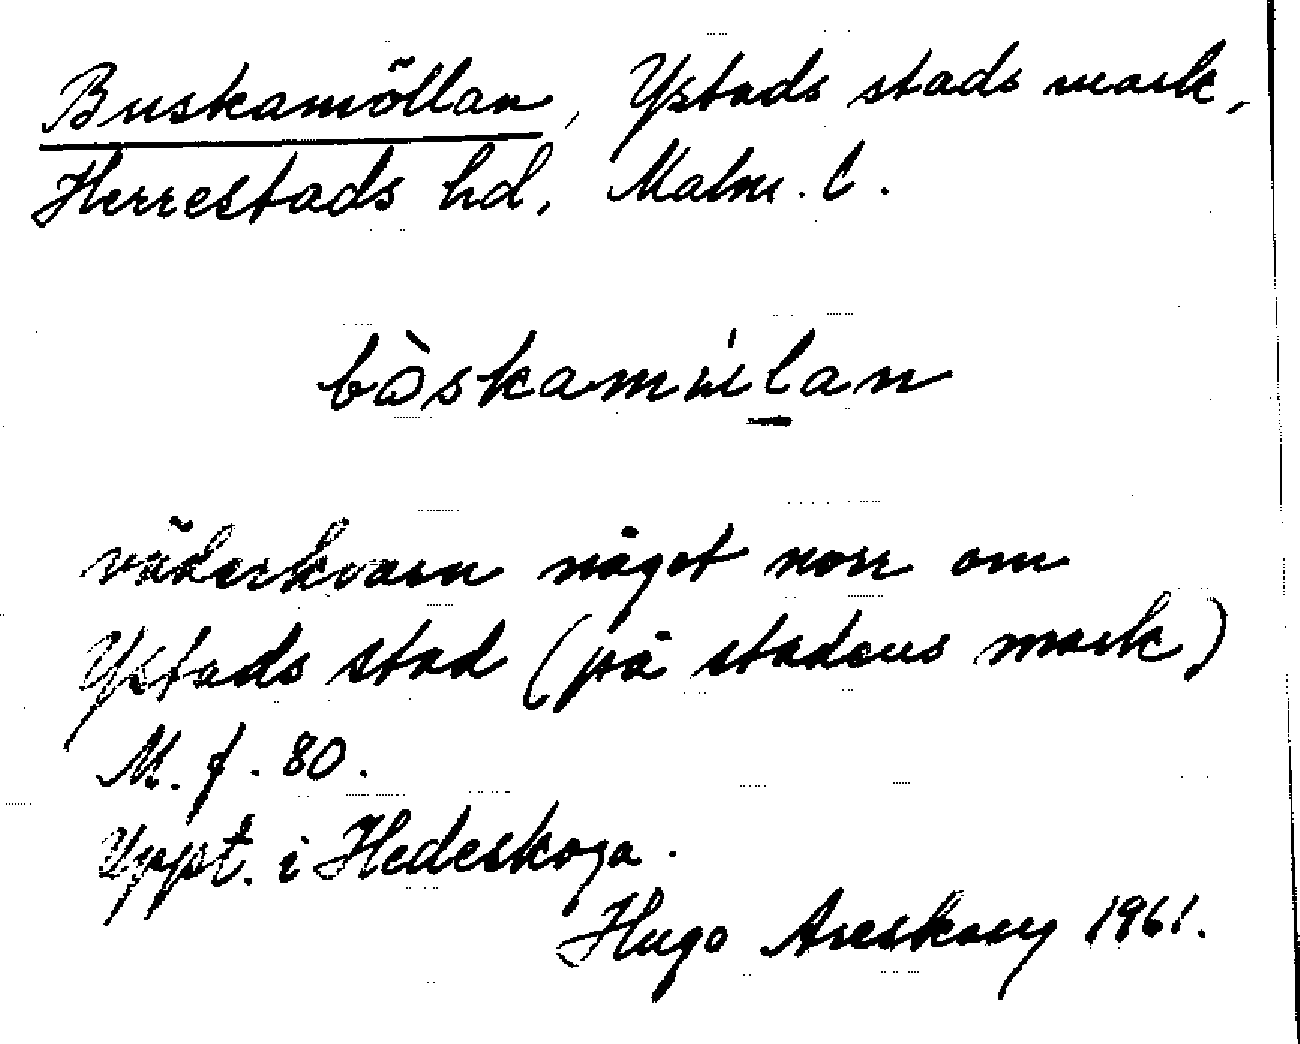 Buskamöllan, Ystads stads mark,
Herrestads hd, Malm. l.
bòskamúlan
väderkvarn något norr om
Ystads stad (på stadens mark)
M. f. 80.
Uppt. i Hedeskoga.
Hugo Areskoug 1961.